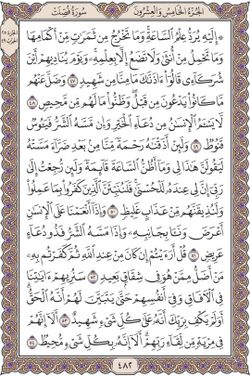 الجُزءُ الخامِسُ وَالعِشرُونَ سُورَةُ فُصِّلَتْ
إِلَيْهِ يُرَدُّ عِلْمُ ٱلسَّاعَةِ وَمَا تَخْرُجُ مِن ثَمَرَٰتٍ مِّنْ أَكْمَامِهَا
وَمَا تَحْمِلُ مِنْ أُنثَىٰ وَلَا تَضَعُ إِلَّا بِعِلْمِهِۦ وَيَوْمَ يُنَادِيهِمْ أَيْنَ
شُرَكَآءِى قَالُوٓا۟ ءَاذَنَّٰكَ مَا مِنَّا مِن شَهِيدٍ ٤٧ وَضَلَّ عَنْهُم
مَّا كَانُوا۟ يَدْعُونَ مِن قَبْلُ وَظَنُّوا۟ مَا لَهُم مِّن مَّحِيصٍ ٤٨
لَّا يَسْـَٔمُ ٱلْإِنسَٰنُ مِن دُعَآءِ ٱلْخَيْرِ وَإِن مَّسَّهُ ٱلشَّرُّ فَيَـُٔوسٌ
قَنُوطٌ ٤٩ وَلَئِنْ أَذَقْنَٰهُ رَحْمَةً مِّنَّا مِنۢ بَعْدِ ضَرَّآءَ مَسَّتْهُ
لَيَقُولَنَّ هَٰذَا لِى وَمَآ أَظُنُّ ٱلسَّاعَةَ قَآئِمَةً وَلَئِن رُّجِعْتُ إِلَىٰ
رَبِّىٓ إِنَّ لِى عِندَهُۥ لَلْحُسْنَىٰ فَلَنُنَبِّئَنَّ ٱلَّذِينَ كَفَرُوا۟ بِمَا عَمِلُوا۟
وَلَنُذِيقَنَّهُم مِّنْ عَذَابٍ غَلِيظٍ ٥٠ وَإِذَآ أَنْعَمْنَا عَلَى ٱلْإِنسَٰنِ
أَعْرَضَ وَنَـَٔا بِجَانِبِهِۦ وَإِذَا مَسَّهُ ٱلشَّرُّ فَذُو دُعَآءٍ
عَرِيضٍ ٥١ قُلْ أَرَءَيْتُمْ إِن كَانَ مِنْ عِندِ ٱللَّهِ ثُمَّ كَفَرْتُم بِهِۦ
مَنْ أَضَلُّ مِمَّنْ هُوَ فِى شِقَاقٍۭ بَعِيدٍ ٥٢ سَنُرِيهِمْ ءَايَٰتِنَا
فِى ٱلْءَافَاقِ وَفِىٓ أَنفُسِهِمْ حَتَّىٰ يَتَبَيَّنَ لَهُمْ أَنَّهُ ٱلْحَقُّ
أَوَلَمْ يَكْفِ بِرَبِّكَ أَنَّهُۥ عَلَىٰ كُلِّ شَىْءٍ شَهِيدٌ ٥٣ أَلَآ إِنَّهُمْ
فِى مِرْيَةٍ مِّن لِّقَآءِ رَبِّهِمْ أَلَآ إِنَّهُۥ بِكُلِّ شَىْءٍ مُّحِيطٌۢ ٥٤
٤٨٢